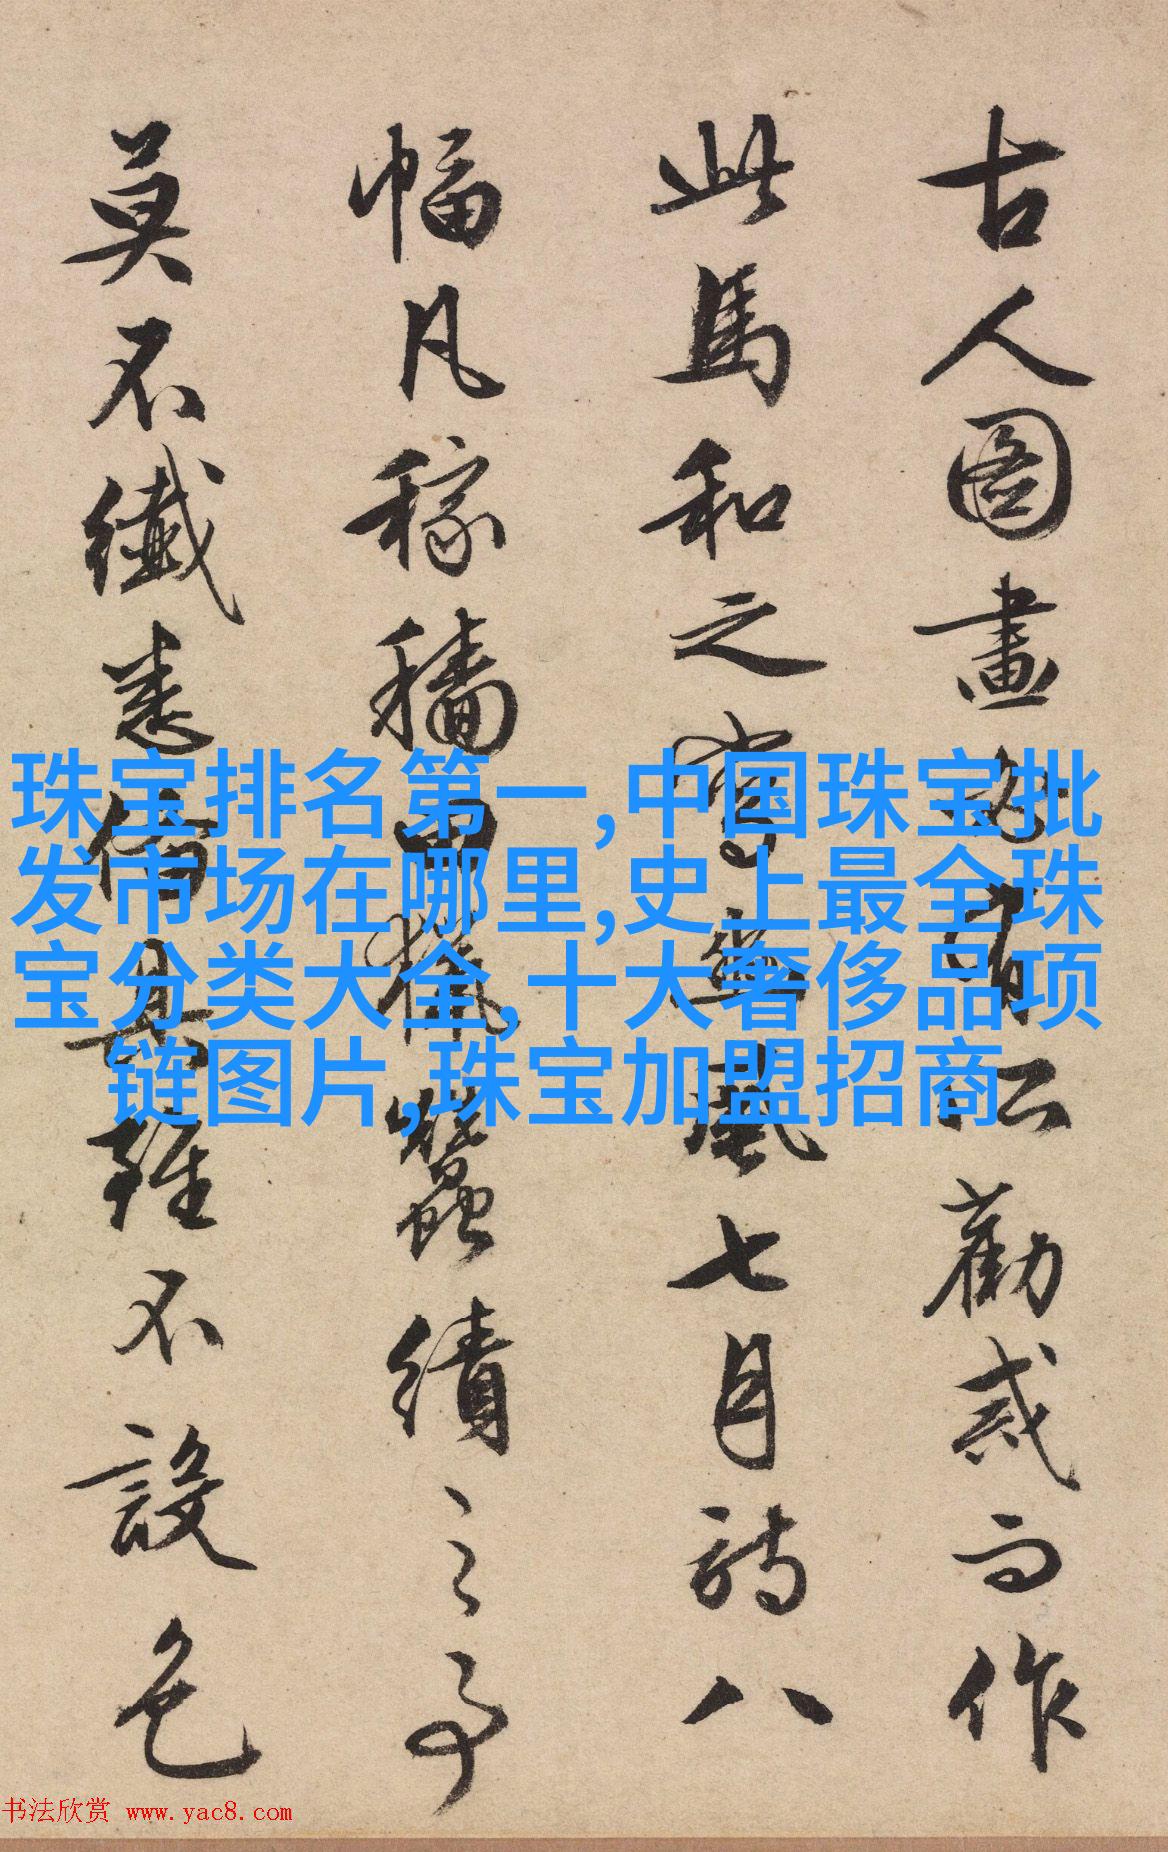 古人圖畫必有以勸戒而作
此馬和之寫豳風七月詩八
幅凡稼穡田獵蠶績之事
莫不纖悉備具雖不設色
珠宝排名第一,中国珠宝批
发市场在哪里,史上最全珠
宝分类大全,十大奢侈品项
链图片,珠宝加盟招商
书法欣赏 www.yac8.com